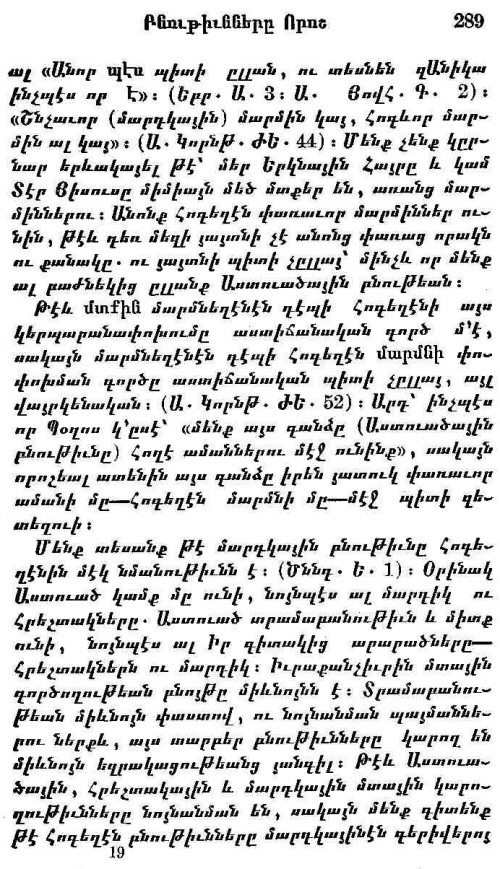 Բնութիւնները Որոշ 289
ալ «Անոր պէս պիտի ըլլան, ու տեսնեն զԱնիկա
ինչպէս որ Է»։ (Եբր. Ա. 3։ Ա. Յովհ. Գ. 2)։
«Շնչաւոր (մարդկային) մարմին կայ, Հոգևոր մար-
մին ալ կայ»։ (Ա. Կորնթ. ԺԵ. 44)։ Մենք չենք կըր-
նար երևակայել թէ՝ մեր Երկնային Հայրը և կամ
Տէր Յիսուսը միմիայն մեծ մտքեր են, առանց մար-
միններու։ Անոնք Հոգեղէն փառաւոր մարմիններ ու-
նին, թէև դեռ մեզի յայտնի չէ անոնց փառաց որակն
ու քանակը. ու յայտնի պիտի չըլլայ՝ մինչև որ մենք
ալ բաժնեկից ըլլանք Աստուածային բնութեան։
Թէև մտքին մարմնեղէնէն դէպի Հոգեղէնի այս
կերպարանափոխումը աստիճանական գործ մ՚է,
սակայն մարմնեղէնէն դէպի Հոգեղէն մարմնի փո-
փոխման գործը աստիճանական պիտի չըլլայ, այլ
վայրկենական։ (Ա. Կորնթ. ԺԵ. 52)։ Արդ՝ ինչպէս
որ Պօղոս կ՚ըսէ՝ «մենք այս գանձը (Աստուածային
բնութիւնը) հողէ ամաններու մէջ ունինք», սակայն
որոշեալ ատենին այս գանձը իրեն յատուկ փառաւոր
ամանի մը—Հոգեղէն մարմնի մը—մէջ պիտի զե-
տեղուի։
Մենք տեսանք թէ մարդկային բնութիւնը Հոգե-
ղէնին մէկ նմանութիւնն է։ (Ծննդ. Ե. 1)։ Օրինակ
Աստուած կամք մը ունի, նոյնպէս ալ մարդիկ ու
Հրեշտակները. Աստուած տրամաբանութիւն և միտք
ունի, նոյնպէս ալ Իր գիտակից արարածները—
Հրեշտակներն ու մարդիկ։ Իւրաքանչիւրին մտային
գործողութեան բնոյթը միևնոյնն է։ Տրամաբանու-
թեան միևնոյն փաստով, ու նոյնանման պայմաննե-
րու ներքև, այս տարբեր բնութիւնները կարող են
միևնոյն եզրակացութեանց յանգիլ։ Թէև Աստուա-
ծային, Հրեշտակային և մարդկային մտային կարո-
ղութիւնները նոյնանման են, սակայն մենք գիտենք
թէ Հոգեղէն բնութիւնները մարդկայինէն գերիվերոյ
19